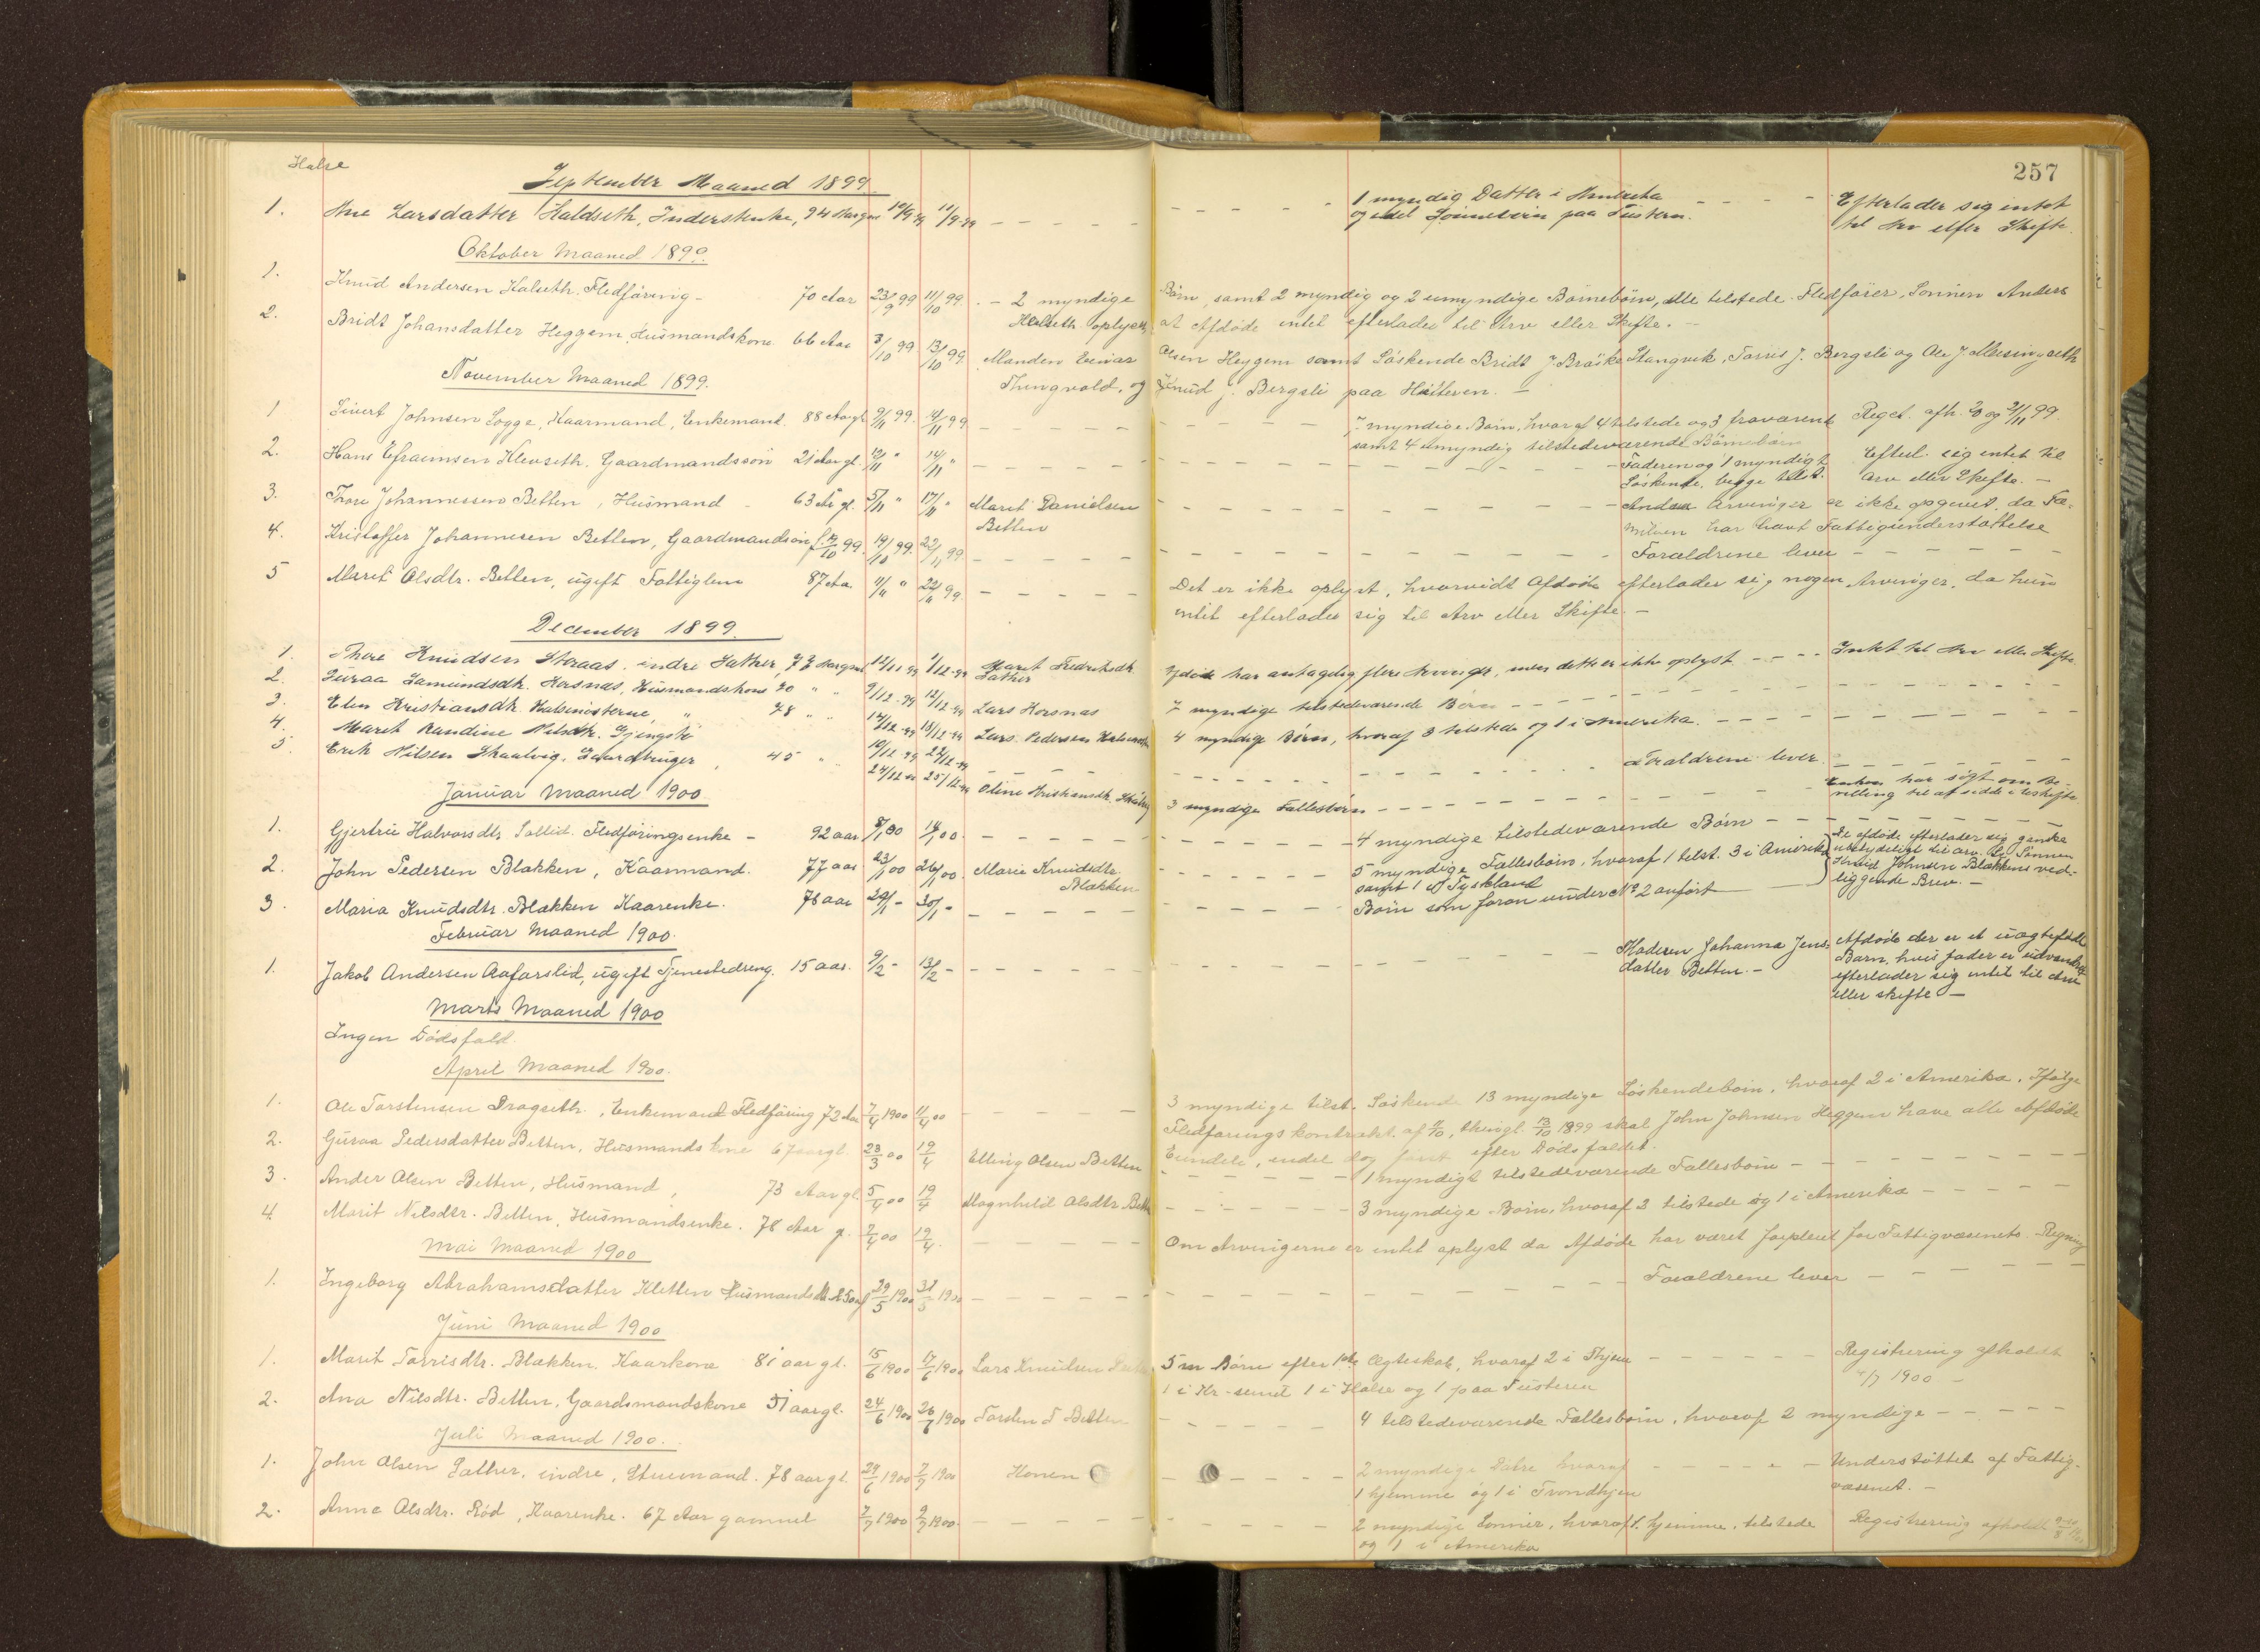 Halse
257
September Maaned 1899.
1. Ane Larsdatter Haldseth, Inderstenke, 94 Aar gm 10/9 99 11/9 99 - - - - - 1 myndig Datter i Amerika - - - - Efterlader sig intet
og edel Sønnebørn paa Tustern. til Arv eller Skifte.
Oktober Maaned 1899.
1. Knud Andersen Halseth. Fledføring - 70 Aar 23/9 99 11/10 99. - 2 myndige Børn, samt 2 myndig og 2 umyndige Børnebørn, alle tilstede. Fledfører, Sønnen Anders
Halseth oplyser, at Afdøde intet efterlader til Arv eller Skifte. -
2. Bridt Johansdatter Heggem, Husmandskone 66 Aar 3/10 99 13/10 99. Manden Einar Olsen Heggem samt Söskende Bridt J. Bräske Stangvik, Torris J. Bergsli og Ole J.
Thingvold, og Knud J. Bergsli paa Hitteren. -
November Maaned 1899.
1 Sivert Johnsen Sogge, Kaarmand, Enkemand. 88 Aar gl. 9/11 99. 14/11 99 - - - - - 7 myndige Børn, hvoraf 4 tilstede og 3 fraværende Regst. afh. 20 og 21/11 99
samt 4 umyndig tilstedeværende Børnebørn
2. Hans Efraimsen Klevseth. Gaardmandssøn 21 Aar gl. 12/11 " 14/11 " - - - - - Faderen og 1 myndigt Efterl. sig intet til
Søskende, begge tilst. Arv eller Skifte. -
3. Thore Johannessen Betten, Husmand - 63 Aar gl. 5/11 " 17/11 " Marit Danielsen - - - - - Andre Arvinger er ikke opgivet, da Fa-
Betten milien har havt Fattigunderstøttelse
4. Kristoffer Johannesen Betten, Gaardmandssøn f. 14/10 99. 19/10 99. 22/11 99 - - - - Forældrene lever - - - - -
5 Marit Olsdtr. Betten, ugift Fattiglem 87 Aar 11/11 " 22/11 99. - - - - - Det er ikke oplyst, hvorvidt Afdøde efterlader sig nogen Arvinger, da hun
intet efterlader sig til Arv eller Skifte. -
December 1899.
1. Thore Knudsen Storaas, indre Sæther, 73 Aar gml 12/11 99 1/12 99 Marit Fredriksdtr. Afdøde har antagelig flere Arvinger, men dette er ikke oplyst - - - - Intet til Arv eller Skifte.
Sæther
2. Guraa Samundsdtr. Korsnæs, Husmandskone 70 " " 9/12 99 12/12 99 Lars Korsnæs 7 myndige tilstedeværende Børn - - - -
3. Elen Kristiansdtr. Halsenøsterne, " 78 " " 14/12 99 15/12 99 Lars Pedersen 4 myndige Børn, hvoraf 3 tilstede og 1 i Amerika. - - - -
4. Marit Randine Nilsdtr. Gjengstø 19/12 99 22/12 99 - - - Forældrene lever. - - - - -
5 Erik Nilsen Skaalvig, Gaardbruger, 45 " " 24/12 99 25/12 99 Oline Kristiansdtr. Skålvig 3 myndige Fællesbørn - - - - Enken har søgt om Be-
villing til at sidde i uskifte
Januar Maaned 1900.
1. Gjertrü Halvorsdtr. Sollid. Fledføringsenke - 92 aar 8/1 00 14/1 00. - - - - - 4 myndige tilstedeværende Børn - - - - -
2. John Pedersen Blakken, Kaarmand. 77 aar 23/1 00 26/1 00. Marie Knudsdtr. - - - - - 5 myndige Fællesbørn, hvoraf 1 tilst. 3 i Amerika De afdøde efterlader sig ganske
Blakken samt 1 i Tyskland ubetydeligt til arv. Se Sønnen
3. Maria Knudsdtr. Blakken Kaarenke. 78 aar 29/1 - 30/1 - - - - - - Børn som foran under No 2 anført Knud Johnsen Blakkens ved-
liggende Brev. -
Februar Maaned 1900.
1. Jakob Andersen Aafarslid, ugift Tjenestedreng. 15 aar. 9/2 - 13/2 - - - - - - Moderen Johanna Jens- Afdøde der er et uægtefødt
datter Betten. - Barn, hvis fader er udvandret
efterlader sig intet til Arv
eller skifte -
Marts Maaned 1900
Ingen Dødsfald.
April Maaned 1900.
1. Ole Torstensen Dragseth, Enkemand Fledføring 72 Aar 7/4 1900 11/4 00 - - - - - 3 myndige tilst. Søskende 13 myndige Søskendebørn, hvoraf 2 i Amerika. Ifølge
Fledføringskontrakt af 6/10, thingl. 13/10 1899 skal John Johnsen Heggem have alle Afdøde
Eiendele, endel dog først efter Dødsfaldet.
2. Guraa Pedersdatter Betten, Husmandskone 67 aar gl. 23/3 00 19/4 Elling Olsen Betten - - - - - 1 myndigt tilstedeværende Fællesbørn - - - - -
3. Ander Olsen Betten, Husmand, 73 Aar gl. 5/4 00 19/4 Magnhild Olsdtr. Betten - - - - - 3 myndige Børn, hvoraf 2 tilstede og 1 i Amerika - - - -
4. Marit Nilsdtr. Betten, Husmandsenke. 78 Aar g. 2/4 00 19/4. - - - - - Om Arvingerne er intet oplyst da Afdøde har været forpleiet for Fattigvæsenets Regning
Mai Maaned 1900
1. Ingeborg Abrahamsdatter Kletten Husmandsdtr. 29/5 1900 31/5 1900 - - - - - Forældrene lever - - - - -
Juni Maaned 1900
1. Marit Torrisdtr. Blakken. Kaarkone 81 aar gl. 15/6 1900 17/6 1900 Lars Knudsen 5 m Børn efter 1ste Ægteskab, hvoraf 2 i Thjem - - - - - Registrering afholdt
1 i Kr.sund 1 i Halse og 1 paa Tusteren 4/7 1900 -
2. Ana Nilsdtr. Betten, Gaardsmandskone 51 aar gl. 24/6 1900 26/6 1900 Torsten T Betten - - - - - 4 tilstedeværende Fællesbørn, hvoraf 2 myndige - - - - -
Juli Maaned 1900.
1. John Olsen Sæther, indre, Stuemand. 78 aar gl. 29/6 1900 7/7 1900 Konen - - - - - 2 myndige Døtre hvoraf - - - - Understøttet af Fattig-
1 hjemme og 1 i Trondhjem væsenet. -
2. Anne Olsdtr. Rød, Kaarenke. 67 Aar gammel 7/7 1900 9/7 1900. - - - - - 2 myndige Sønner, hvoraf 1 hjemme, tilstede Registrering afholdt
og 1 i Amerika